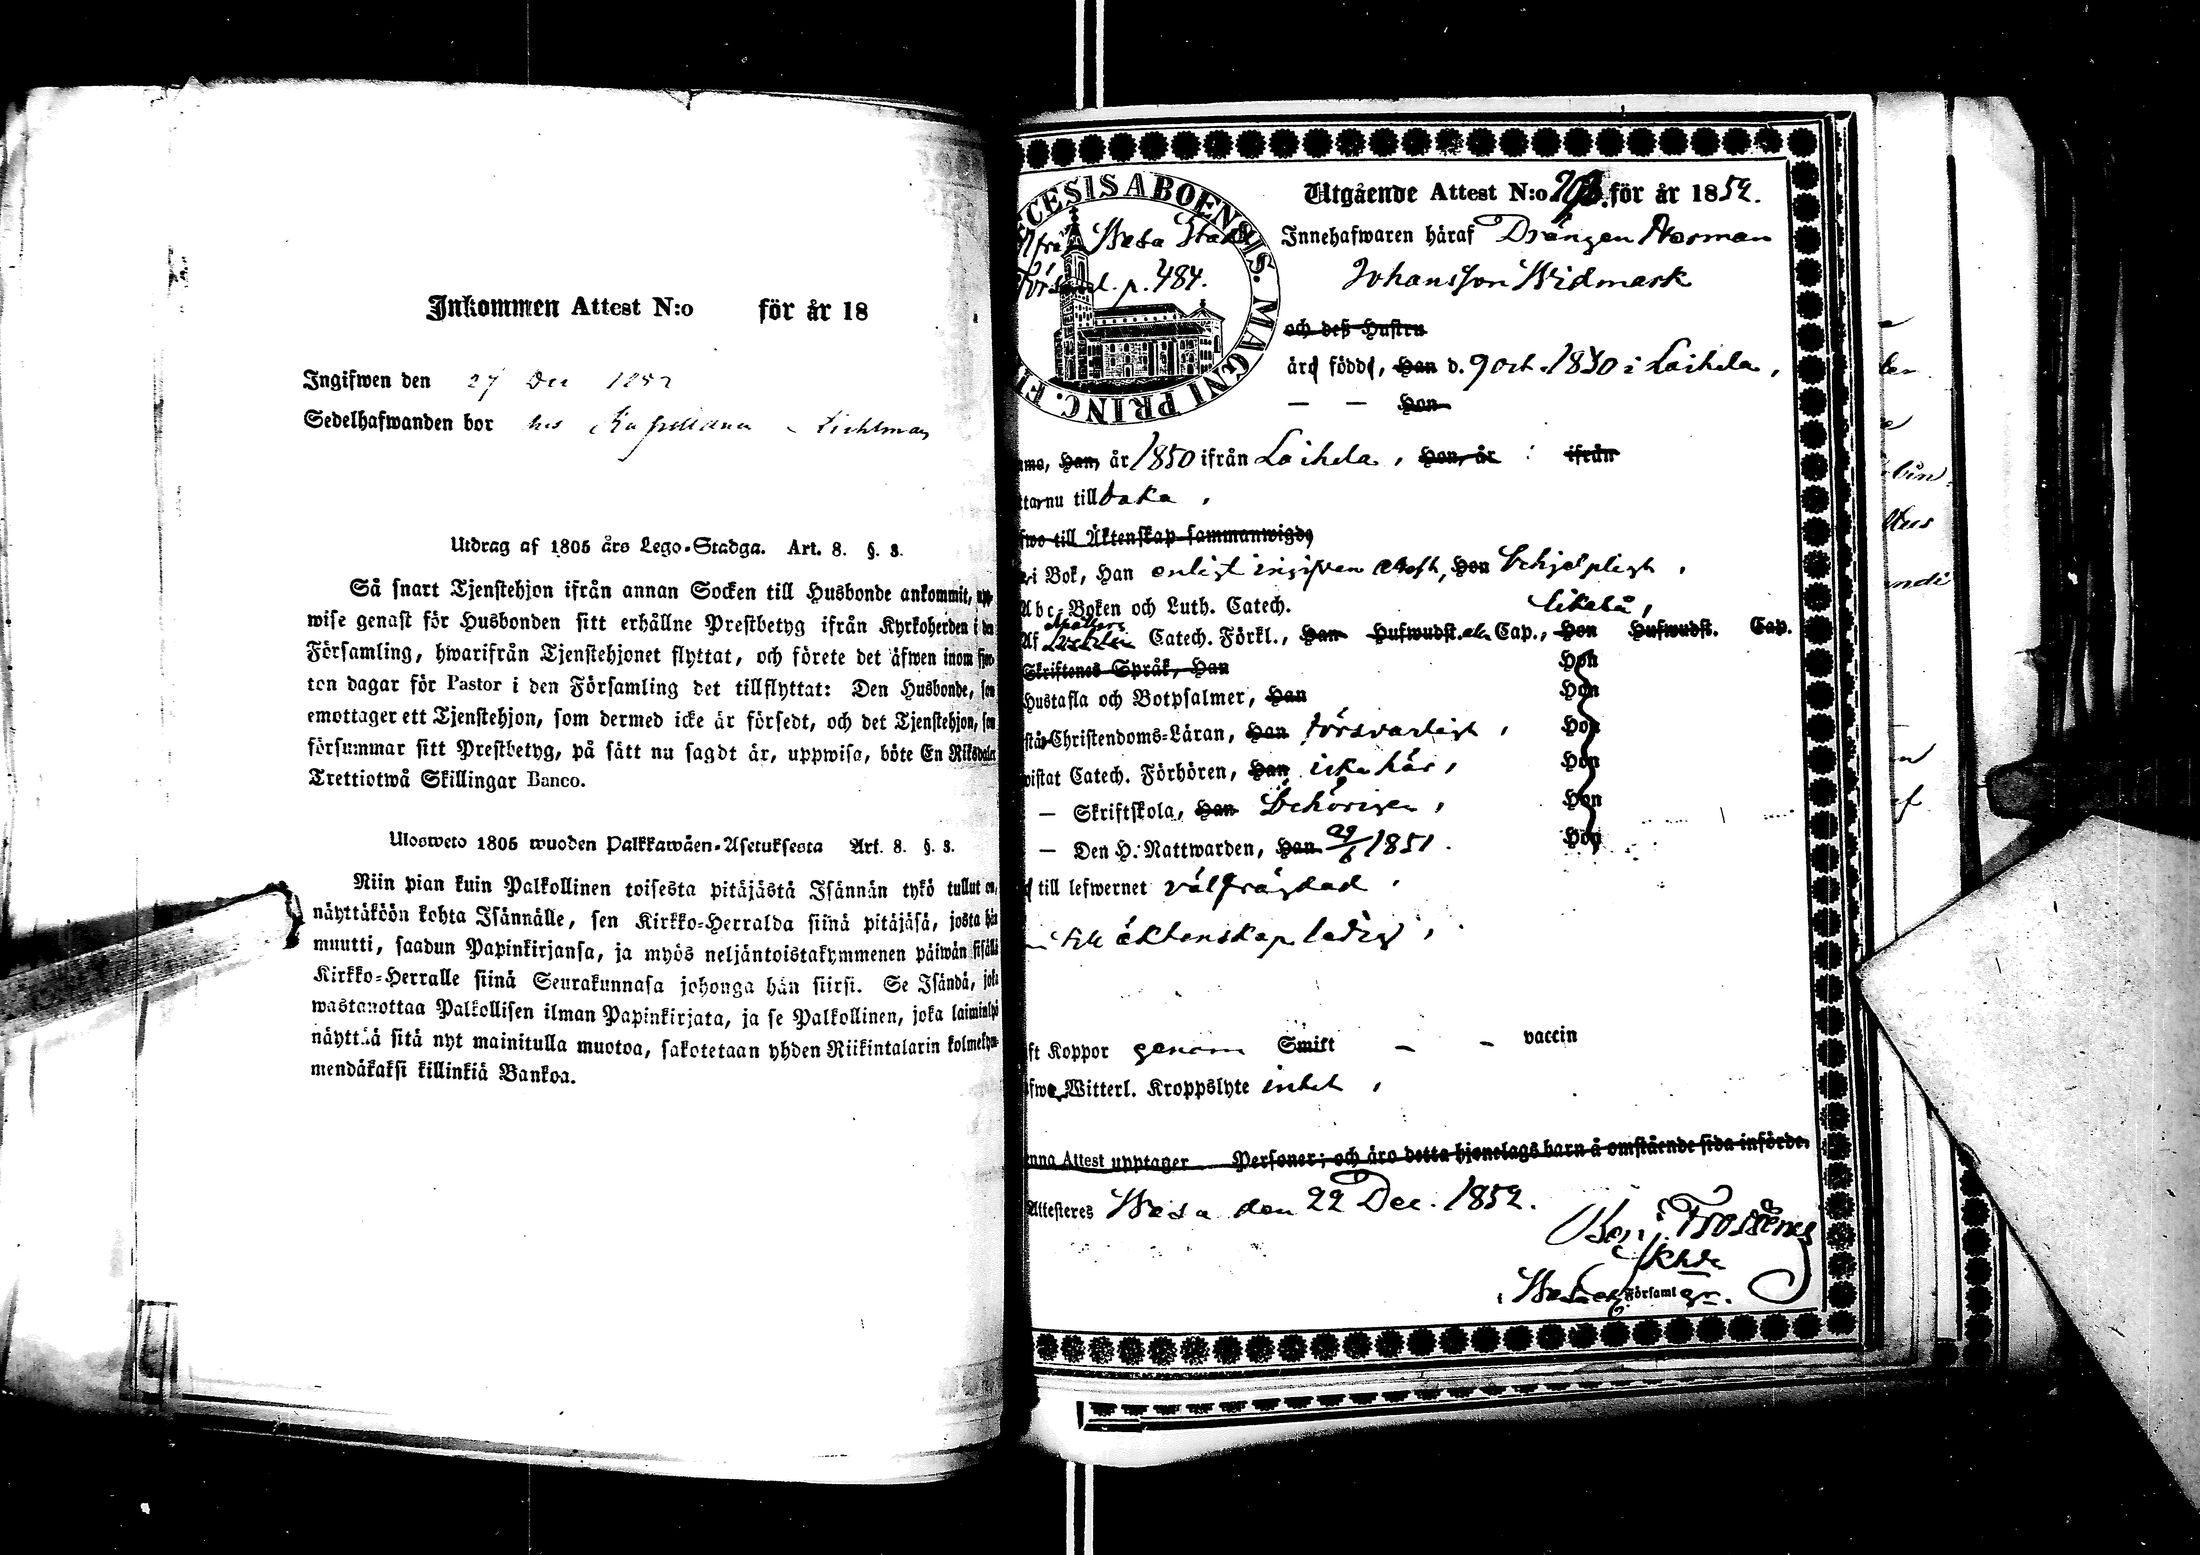 Inkommen Attest N:o för år 18
Ingifwen den 27 Dec 1852
Sedelhafwanden bor hos
Utdrag af 1805 års Lego-Stadga. Art. 8. §. 3.
Så snart Tjenstehjon ifrån annan Socken till Husbonde ankommit, upp-
wise genast för Husbonden sitt erhållne Prestbetyg ifrån Kyrkoherden i den
Församling, hwarifrån Tjenstehjonet flyttat, och förete det äfwen inom fjor-
ton dagar för Pastor i den Församling det tillflyttat: Den Husbonde, som
emottager ett Tjenstehjon, som dermed icke är försedt, och det Tjenstehjon, som
försummar sitt Prestbetyg, på sätt nu sagdt är, uppwisa, böte En Riksdaler
Trettiotwå Skillingar Banco.
Ulosweto 1805 wuoden Palkkawäen-Asetuksesta Art. 8. §. 3.
Niin pian kuin Palkollinen toisesta pitäjästä Isännän tykö tullut on,
näyttäköön kohta Isännälle, sen Kirkko-Herralda siinä pitäjäsä, josta hän
muutti, saadun Papinkirjansa, ja myös neljäntoistakymmenen päiwän sisällä
Kirkko-Herralle siinä Seurakunnasa johonga hän siirsi. Se Isändä, joka
wastanottaa Palkollisen ilman Papinkirjata, ja se Palkollinen, joka laiminlyö
näyttää sitä nyt mainitulla muotoa, sakotetaan yhden Riikintalarin kolmekym-
mendäkaksi killinkiä Bankoa.
CESIS ABOENSIS. MAGNI PRINC. FI
Ifrån Wasa Stads
Församl. p. 484.
Utgående Attest N:o för år 1852.
Innehafwaren häraf Drängen Herman
Johansson Widmark
och deß Hustru
äro födde, Han d. 9 Oct. 1830 i Laihela,
— — Hon
Han, år 1850 ifrån Laihela, Hon, år : ifrån
nu tillbaka,
till Äktenskap sammanwigde
i Bok, Han enligt ingifven attest, Hon behjelpligt,
Abc-Boken och Luth. Catech. likaså,
Af Catech. Förkl., Han Hufwudst. Cap., Hon Hufwudst. Cap.
Skriftenes Språk, Han Hon
Hustafla och Botpsalmer, Han Hon
Christendoms-Läran, Han försvarligt, Hon
wistat Catech. Förhören, Han icke här, Hon
— Skriftskola, Han behörigen, Hon
— Den H. Nattwarden, Han 1851. Hon
till lefwernet välfrägdad,
till äktenskap ledig,
ft Koppor genom Smitt – – vaccin
Witterl. Kroppslyte intet,
enna Attest upptager Personer; och äro detta hjonelags barn å omstående sida införde.
Attesteres Wasa den 22 Dec. 1852.
Församl